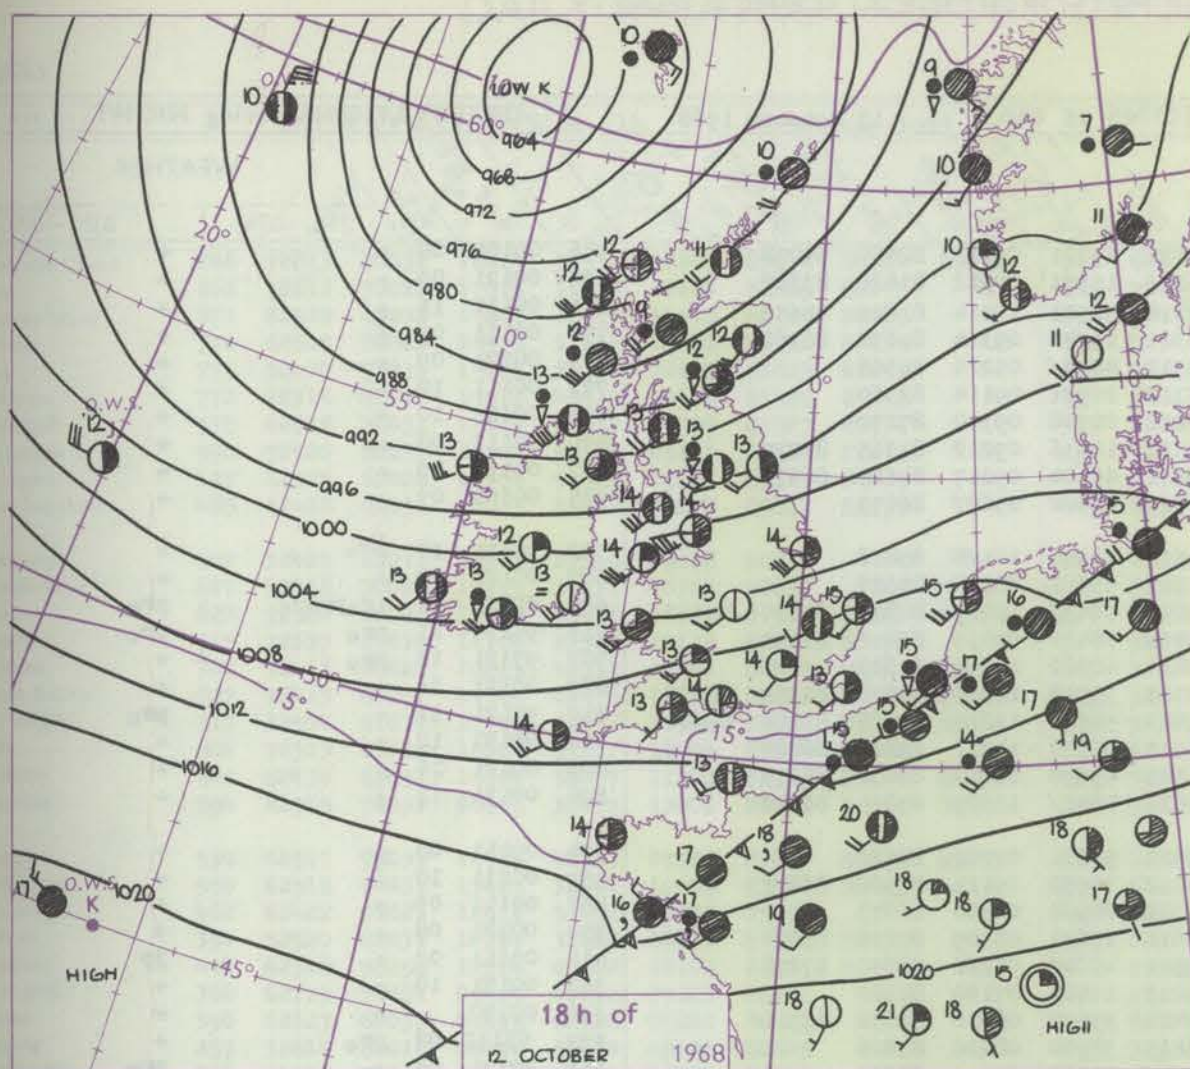 LOW K
10
10
9
7
60°
964
968
972
976
980
984
988
992
996
1000
1004
1008
1012
1016
1020
20°
10°
55°
0°
0°
50°
15°
15°
45°
O.W.S.
12
O.W.S.
K
17
HIGH
10
10
10
11
12
12
11
10
12
12
11
12
9
12
12
13
13
13
13
13
13
14
14
14
14
12
13
13
13
13
13
14
15
15
15
16
17
13
14
13
15
17
17
14
13
14
15
15
14
19
13
20
14
17
18
18
16
17
19
18
18
17
1020
15
HIGH
18
21
18
18 h of
12 OCTOBER 1968